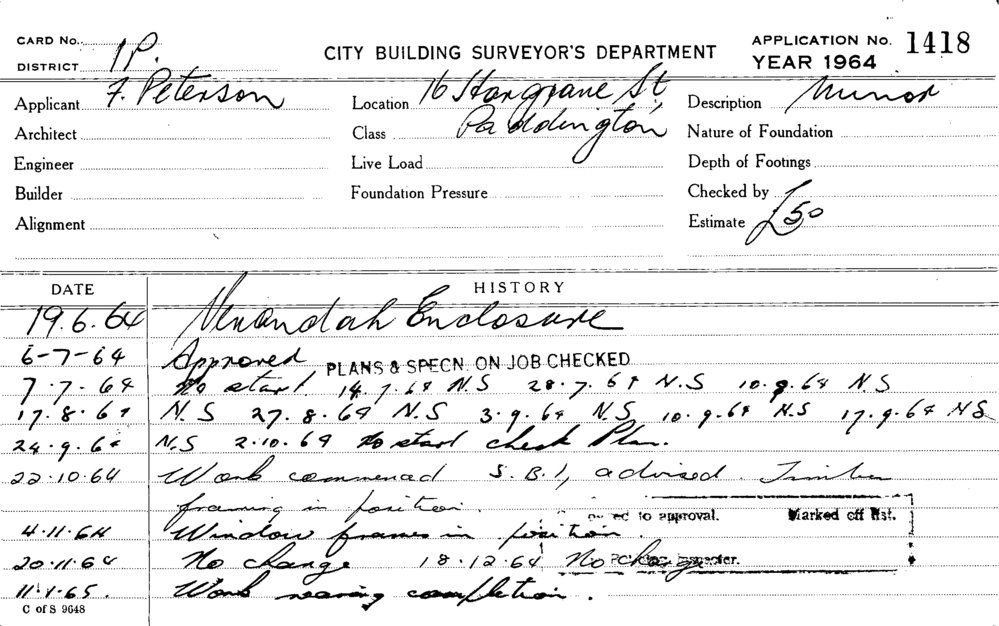 CARD No. 1P.
CITY BUILDING SURVEYOR'S DEPARTMENT
APPLICATION No. 1418
DISTRICT
YEAR 1964
Applicant F. Peterson
Location 16 Hargrave St,
Description Minor
Architect
Class Paddington
Nature of Foundation
Engineer
Live Load
Depth of Footings
Builder
Foundation Pressure
Checked by
Alignment
Estimate £50
DATE HISTORY
19.6.64 Verandah Enclosure
6-7-64 Approved PLANS & SPECN. ON JOB CHECKED
7.7.64 No start. 14.7.64 N.S 28.7.64 N.S 10.8.64 N.S
17.8.64 N.S 27.8.64 N.S 3.9.64 N.S 10.9.64 N.S 17.9.64 N.S
24.9.64 N.S 2.10.64 No start check Plan.
22.10.64 Work commenced S.B.I, advised. Timber
framing in position.
to approval. Marked off list.
4.11.64 Window frames in position.
20.11.64 No change 18.12.64 No change
11.1.65. Work nearing completion.
C of S 9648